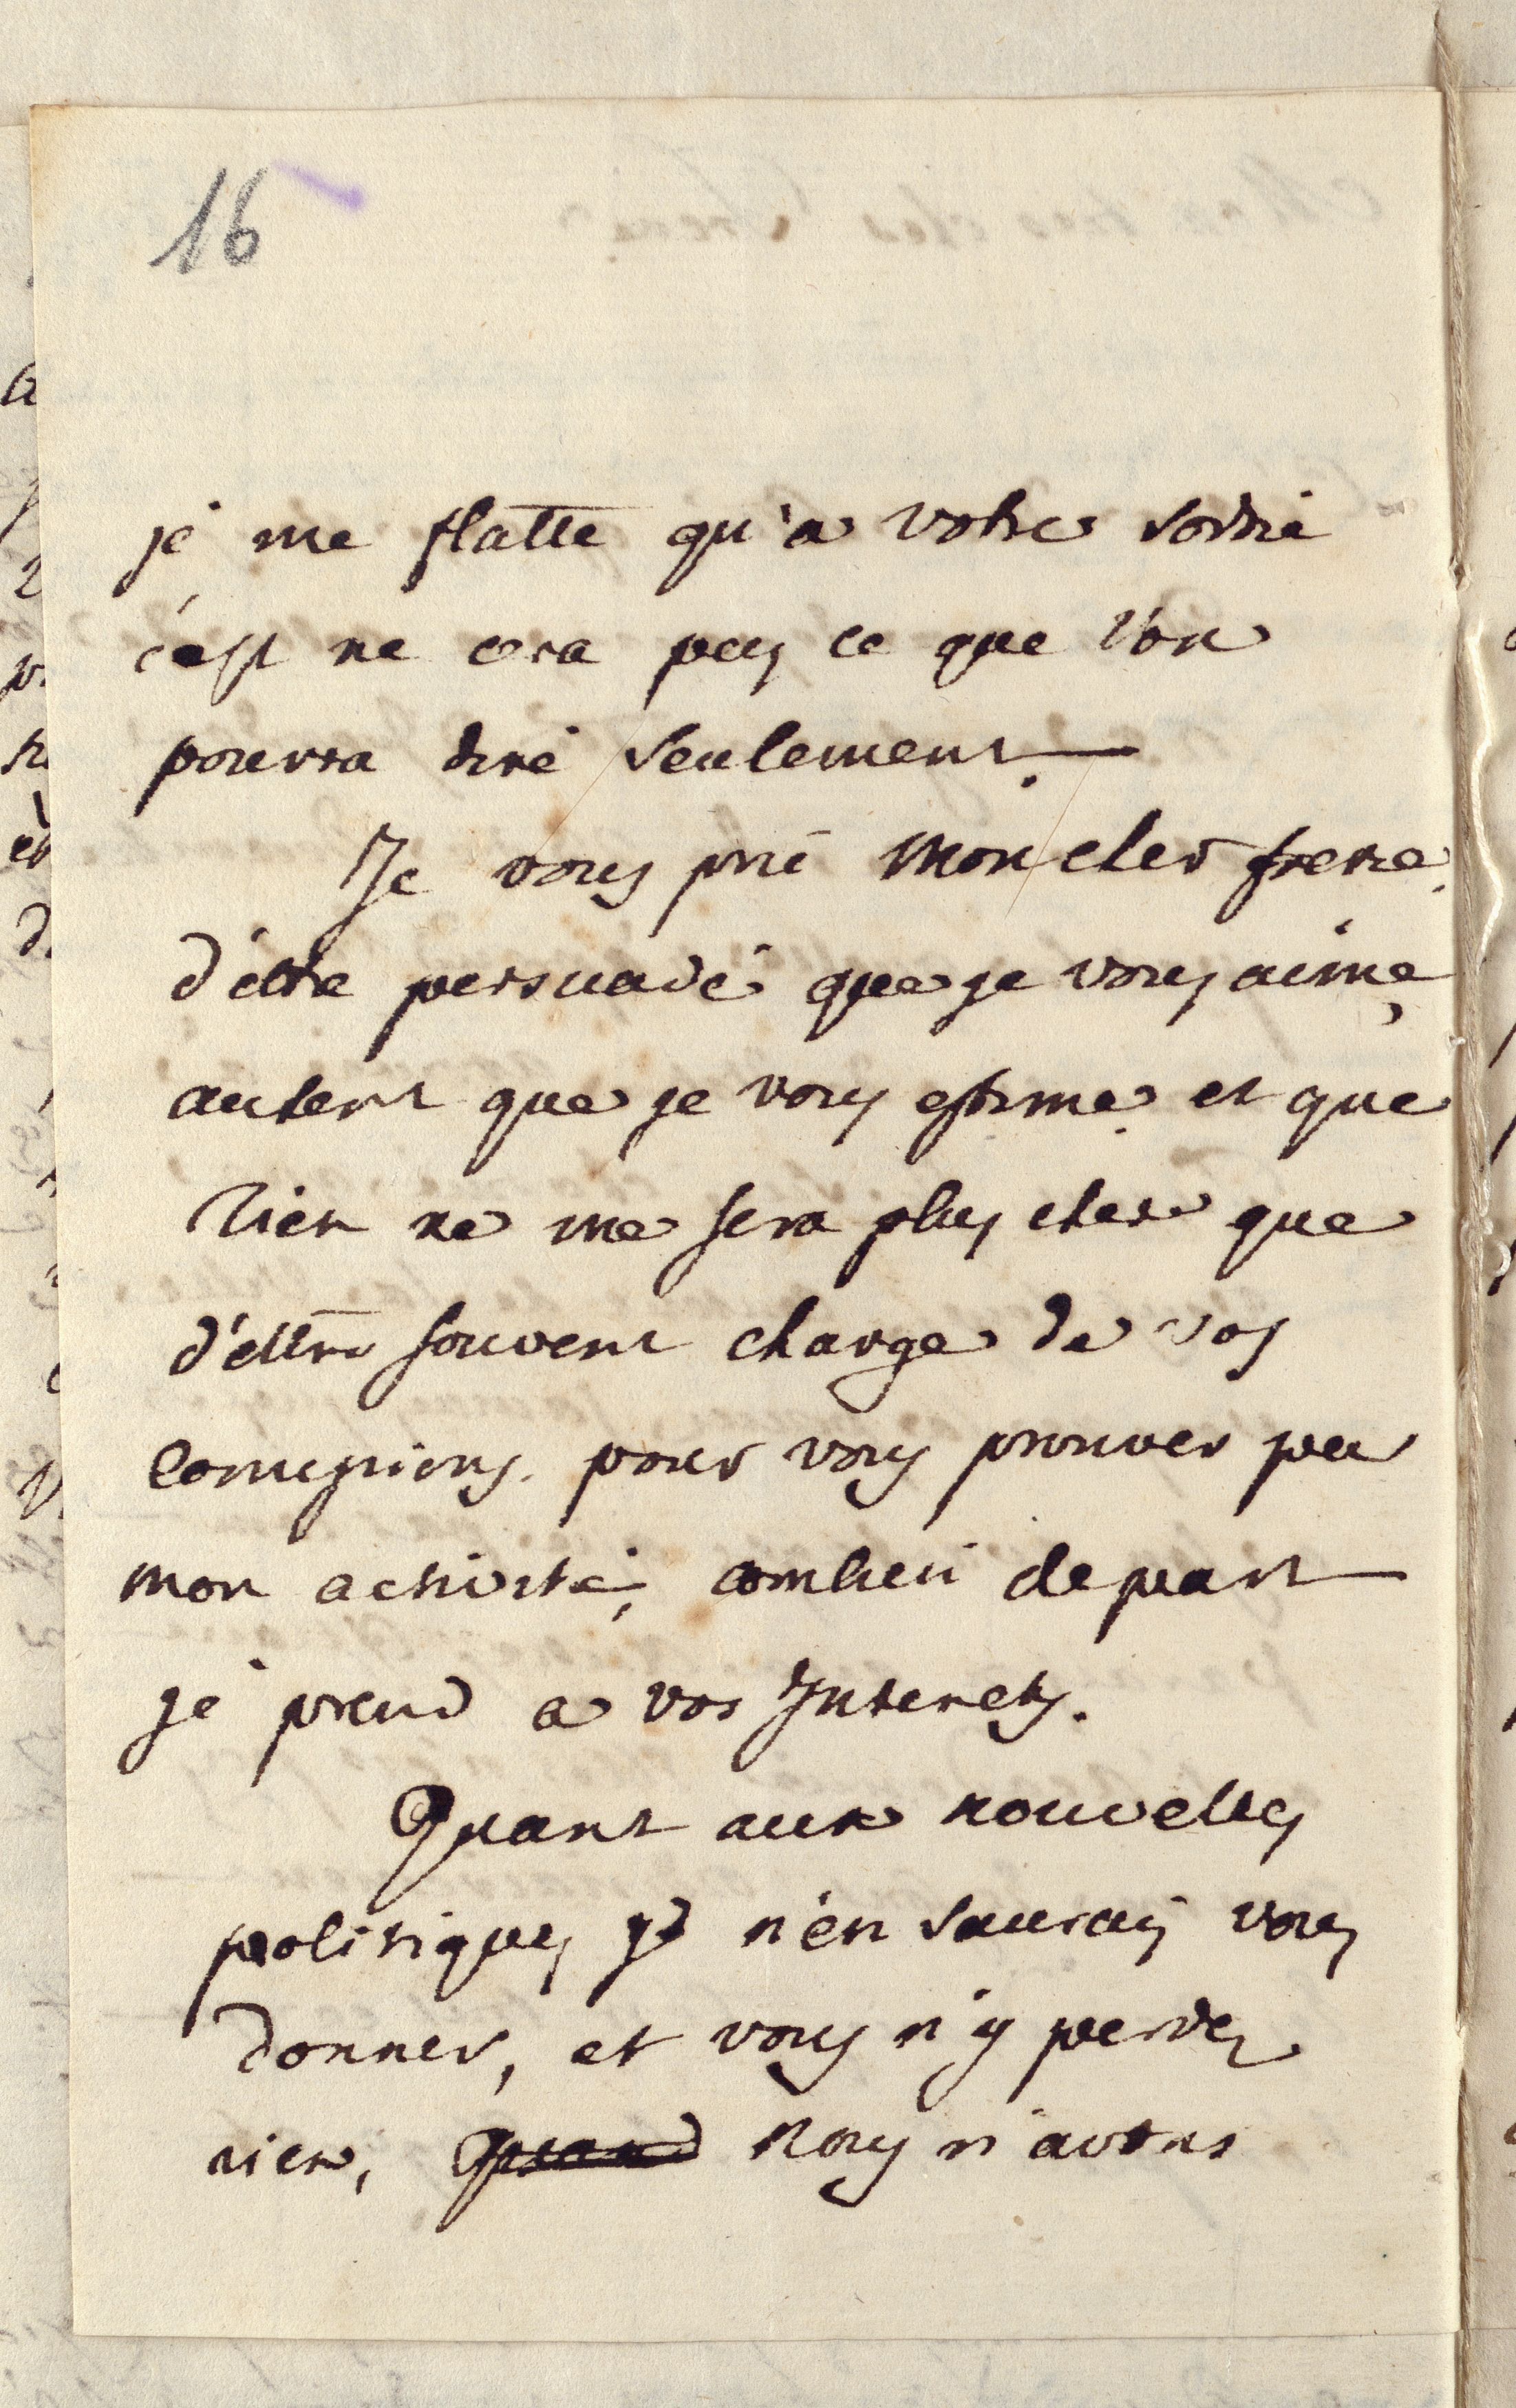 16
je me flatte qu'a votre sortie
c'est ne cera pas ce que l'on
pourra dire seulement.
Je vous prie mon cher frere
d'ettre persuadé que je vous aime,
autent que je vous estime et que
rien ne me sera plus cher que
d'ettre souvent charge de vos
comissions. pour vous prouver par
mon activité, combien de part
je prend a vos Interets.
Quant aux nouvelles
politiques je n'en saurais vous
donner, et vous n'y perdez
rien, Quand nous n'avons